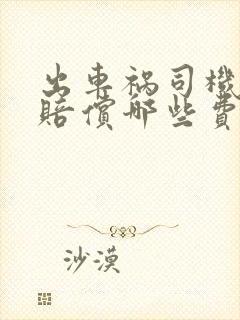 出車祸司機
賠償哪些費
沙漠